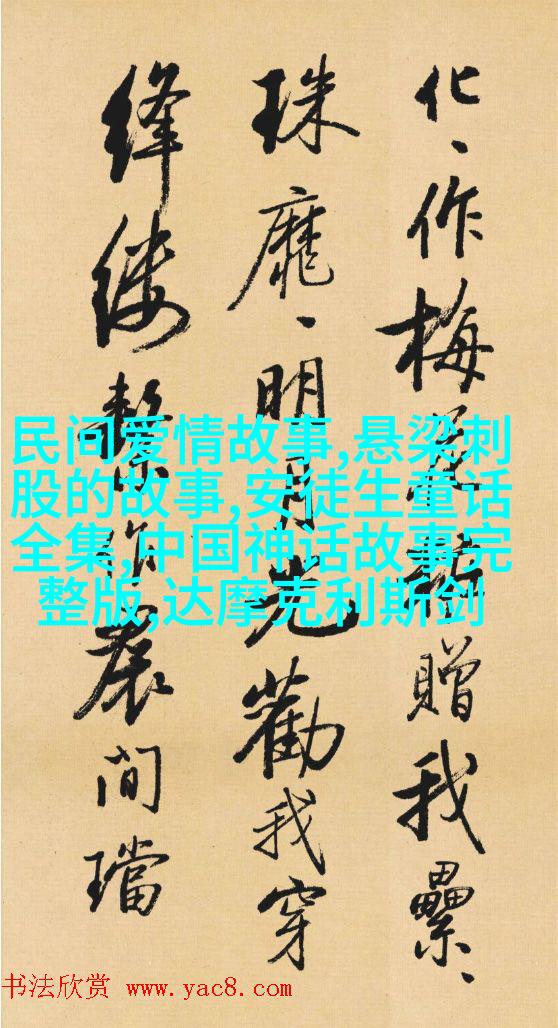 化、作梅花贈我纍、
珠靡、明月光勸我穿
絳縷繫作間璫
民间爱情故事,悬梁刺
股的故事,安徒生童话
全集,中国神话故事完
整版,达摩克利斯剑
书法欣赏 www.yac8.com